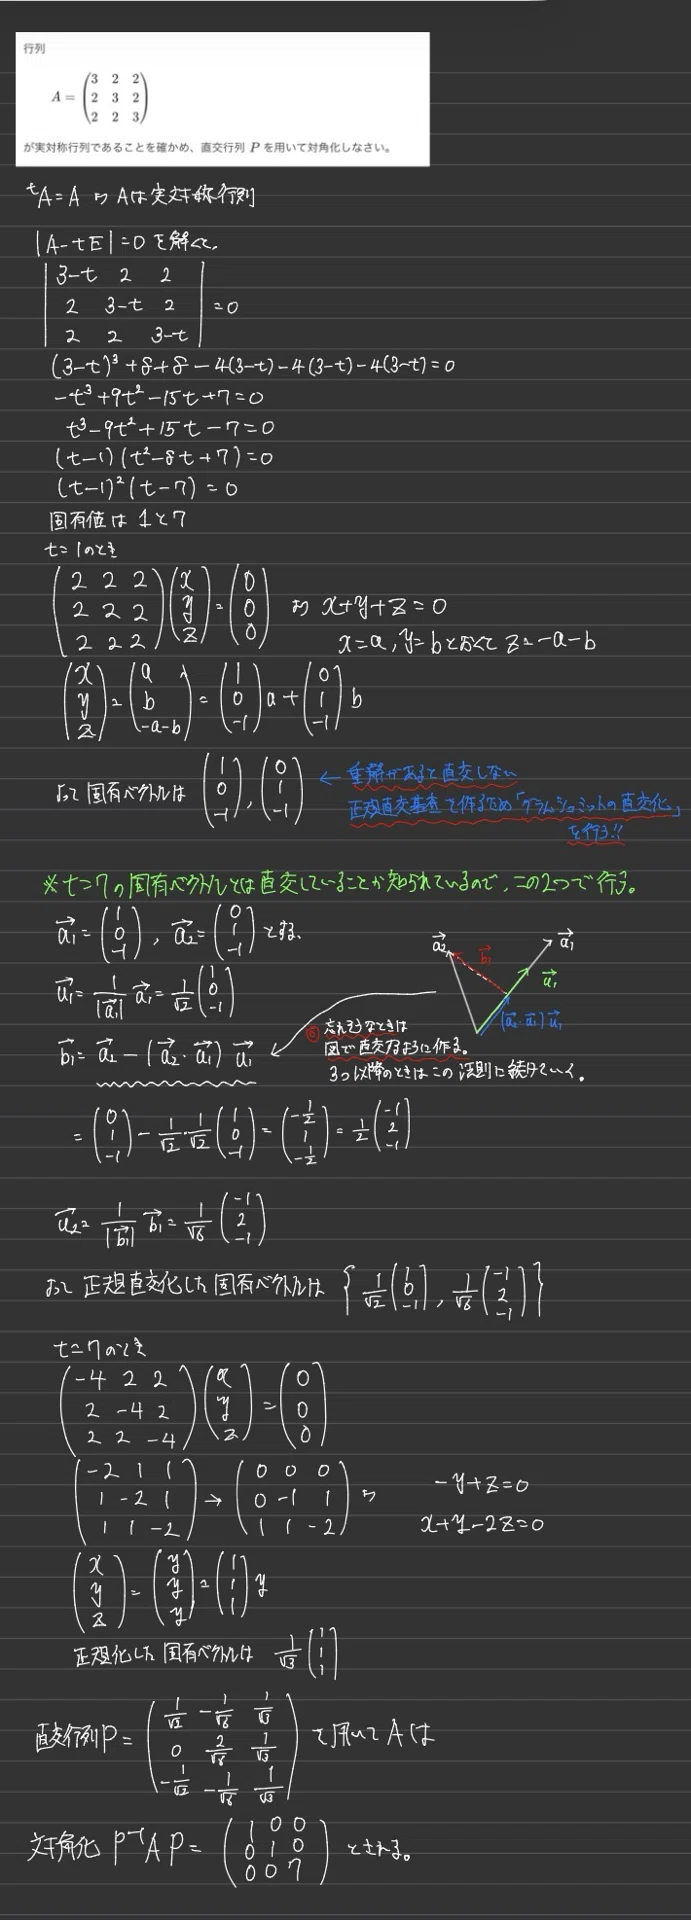 行列
A = (3 2 2
2 3 2
2 2 3)
が実対称行列であることを確かめ、直交行列 P を用いて対角化しなさい。
ᵗA=A より Aは実対称行列
|A-tE|=0 を解くと、
|3-t 2 2|
|2 3-t 2| =0
|2 2 3-t|
(3-t)³+8+8-4(3-t)-4(3-t)-4(3-t)=0
-t³+9t²-15t+7=0
t³-9t²+15t-7=0
(t-1)(t²-8t+7)=0
(t-1)²(t-7)=0
固有値は 1と7
t=1のとき
(2 2 2)(x) (0)
(2 2 2)(y)=(0) より x+y+z=0
(2 2 2)(z) (0)
x=a, y=b とおくと z=-a-b
(x) (a) (1) (0)
(y)=(b)=(0)a+(1)b
(z) (-a-b) (-1) (-1)
よって 固有ベクトルは (1 0 -1), (0 1 -1)
← 重解があると直交しない
正規直交基底で作るため「グラムシュミットの直交化」
を行う!!
※ t=7の固有ベクトルとは直交していることが知られているので、この2つで行う。
a₁→=(1 0 -1), a₂→=(0 1 -1) とする、
u₁→=1/|a₁→| a₁→=1/√2 (1 0 -1)
b₁→=a₂→-(a₂→・u₁→)u₁→
a₂→ b₁→ a₁→
u₁→
(a₂→・u₁→)u₁→
◎ 忘れそうなときは
図で直交なるように作る。
3つ以降のときはこの法則に続けていく。
=(0 1 -1)-1/√2・1/√2(1 0 -1)=(-1/2 1 -1/2)=1/2(-1 2 -1)
u₂→=1/|b₁→| b₁→=1/√6(-1 2 -1)
よって 正規直交化した固有ベクトルは {1/√2(1 0 -1), 1/√6(-1 2 -1)}
t=7のとき
(-4 2 2)(x) (0)
(2 -4 2)(y)=(0)
(2 2 -4)(z) (0)
(-2 1 1) (0 0 0)
(1 -2 1)→(0 -1 1) より
(1 1 -2) (1 1 -2)
-y+z=0
x+y-2z=0
(x) (y) (1)
(y)=(y)=(1)y
(z) (y) (1)
正規化した固有ベクトルは 1/√3 (1 1 1)
直交行列P=(1/√2 -1/√6 1/√3
0 2/√6 1/√3
-1/√2 -1/√6 1/√3) を用いて Aは
対角化 P⁻¹AP=(1 0 0
0 1 0
0 0 7) とされる。